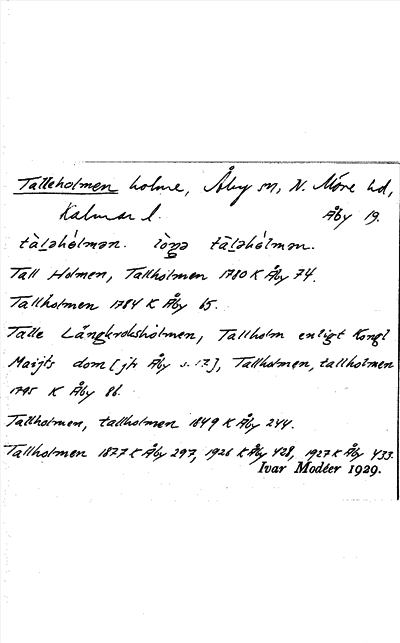 Talleholmen holme, Åby sn, N. Möre hd,
Kalmar l. Åby 19.
tàl̲əhól̀mən. tàl̲əhól̀mən.
Tall Holmen, Tallhólmen 1780 K Åby 74.
Tallhólmen 1784 K Åby 65.
Talle Långkroksholmen, Tallholm enligt Kongl
Maijts dom [jfr Åby s. 17], Tallholmen, tallholmen
1795 K Åby 86.
Tallholmen, tallholmen 1849 K Åby 244.
Tallholmen 1827 K Åby 297, 1926 K Åby 428, 1927 K Åby 433.
Ivar Modéer 1929.